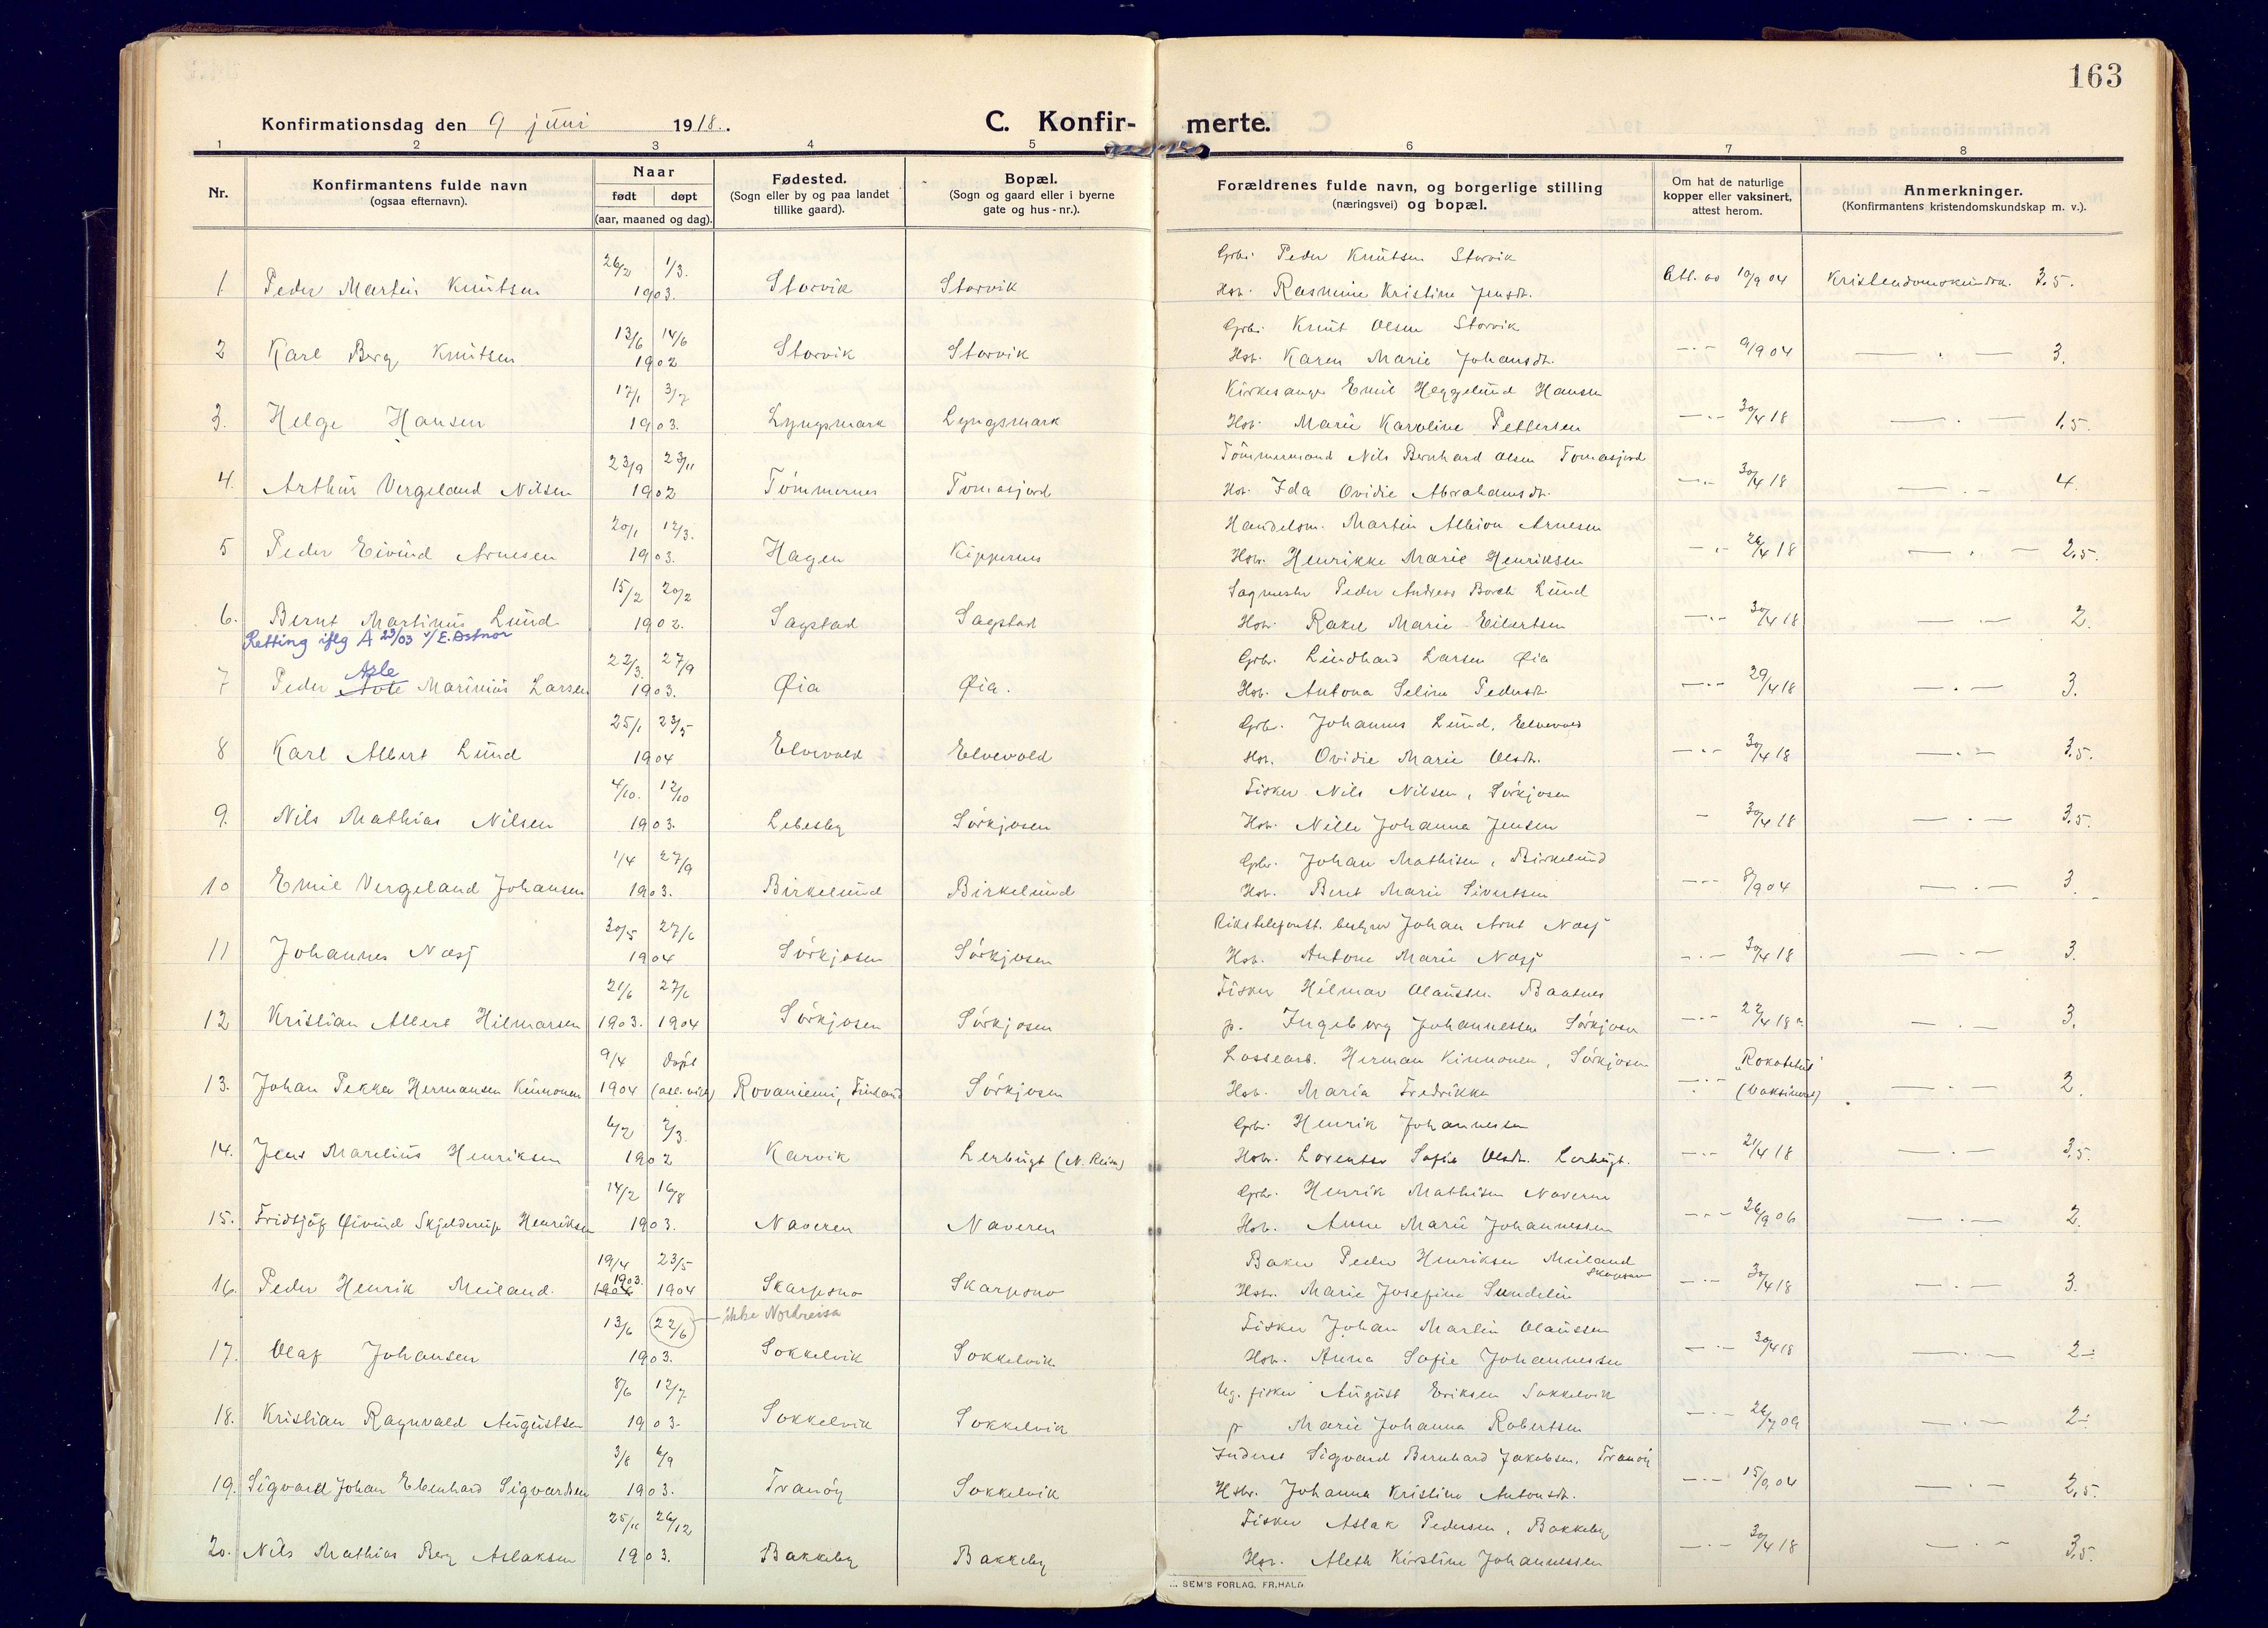 163
Konfirmationsdag den 9 juni 1918.
C. Konfir- merte.
1 2 3 4 5 6 7 8
Nr.
Konfirmantens fulde navn
(ogsaa efternavn).
Naar
født døpt
(aar, maaned og dag).
Fødested.
(Sogn eller by og paa landet
tillike gaard).
Bopæl.
(Sogn og gaard eller i byerne
gate og hus-nr.).
Forældrenes fulde navn, og borgerlige stilling
(næringsvei) og bopæl.
Om hat de naturlige
kopper eller vaksinert,
attest herom.
Anmerkninger.
(Konfirmantens kristendomskundskap m. v.).
26/2 1/3. Grbr. Peder Knutsen Storvik
1 Peder Martin Knutsen 1903. Storvik Storvik Hstr. Rasmine Kristine Jensdt. Att. av 10/9 04 Kristendomskundsk. 3.5.
13/6 14/6 Grbr. Knut Olsen Storvik
2 Karl Berg Knutsen 1902 Storvik Storvik Hstr. Karen Marie Johansdt. —.— 9/9 04 — . — 3.
17/1 3/7 Kirkesanger Emil Heggelund Hansen
3. Helge Hansen 1903. Lyngsmark Lyngsmark Hstr. Marie Karoline Pettersen —.— 30/4 18 — . — 1,5.
23/9 23/11 Tömmermand Nils Bernhard Olsen Tomasjord
4. Arthur Vergeland Nilsen 1902 Tömmernes Tomasjord Hstr. Ida Ovidie Abrahamsdt. —.— 30/4 18 — . — 4.
20/1 12/3. Handelsm. Martin Albion Arnesen
5 Peder Eivind Arnesen 1903. Hagen Kippernes Hstr. Henrikke Marie Henriksen —.— 26/4 18 — . — 2,5.
15/2 20/2 Sagmester Peder Andreas Borch Lund
6. Bernt Martinus Lund 1902. Sagstad Sagstad Hstr. Rakel Marie Eilertsen —.— 30/4 18 — . — 2.
Retting iflg A 29/03 v/E. Astnor
22/3. 27/9 Grbr. Lindhard Larsen Øia
7 Peder Asle Marinius Larsen 1903. Øia Øia. Hstr. Antona Seline Pedersdt. —.— 29/4 18 — . — 3.
25/1 23/5 Grbr. Johannes Lund, Elvevold
8 Karl Albert Lund 1904 Elvevold Elvevold Hstr. Ovidie Marie Olsdt. —.— 30/4 18 — . — 3.5.
4/10. 12/10 Fisker Nils Nilsen, Sörkjosen
9. Nils Mathias Nilsen 1903. Lebesby Sörkjosen Hstr. Nille Johanna Jensen — 30/4 18 — . — 3.5.
1/4 27/9 Grbr. Johan Mathisen, Birkelund
10 Emil Vergeland Johansen 1903. Birkelund Birkelund Hstr. Beret Marie Sivertsen —.— 8/9 04 — . — 3.
30/5 27/6 Rikstelefonst. bestyrer Johan Arnt Næsj
11 Johannes Næsj 1904 Sörkjosen Sörkjosen Hstr. Antone Marie Næsj —.— 30/4 18 — . — 3.
21/6 27/6 Fisker Hilmar Olaussen Baatnes
12 Kristian Albert Hilmarsen 1903. 1904 Sörkjosen Sörkjosen p. Ingeborg Johannessen Sörkjosen —.— 22/4 18 — . — 3.
9/4 døpt Lossearb. Herman Kinnonen, Sörkjosen "Rokotettu"
13. Johan Pekka Hermansen Kinnonen 1904 Rovaniemi, Finland Sörkjosen Hstr. Maria Fredrikka —.— (Vaksineret) — . — 2.
6/2 2/3. Grbr. Henrik Johannesen
14. Jens Marelius Henriksen 1902 Karvik Lerbugt (N. Reisa) Hstr. Lorentse Sofie Olsdt. Lerbugt. —.— 21/4 18 — . — 3.5.
14/2 16/8 Grbr. Henrik Mathisen Naveren
15. Fridtjöf Øivind Skjelderup Henriksen 1903. Naveren Naveren Hstr. Anne Marie Johannessen —.— 26/9 06 — . — 2.
19/4 23/5 Baker Peder Henriksen Meiland
16. Peder Henrik Meiland. 1903. 1904 Skarpsno Skarpsno Hstr. Marie Josefine Sundelin —.— 30/4 18 — . — 3.
13/6 22/6 — ikke Nordreisa Fisker Johan Martin Olaussen
17. Olaf Johansen 1903. Sokkelvik Sokkelvik Hstr. Anna Sofie Johannessen —.— 30/4 18 — . — 2-:
8/6 12/7 Ug. fisker August Eriksen Sokkelvik
18. Kristian Ragnvald Augustsen 1903. Sokkelvik Sokkelvik p Marie Johanna Robertsen —.— 26/7 09 — . — 2-:
3/8 6/9 Inderst Sigvard Bernhard Jakobsen, Tranöy
19. Sigvard Johan Ebenhard Sigvardsen 1903. Tranöy Sokkelvik Hstr. Johanna Kristine Antonsdt. —.— 15/9 04 — . — 2.5.
25/11 26/12 Fisker Aslak Pedersen, Bakkeby
20. Nils Mathias Berg Aslaksen 1903. Bakkeby Bakkeby Hstr. Aleth Kirstine Johannessen —.— 30/4 18 — . — 3,5.
SEM'S FORLAG, FR.HALD